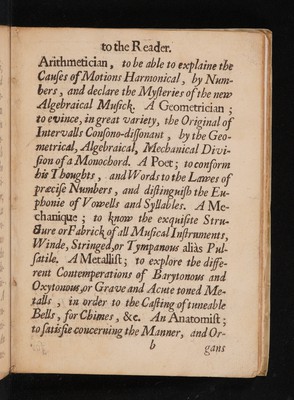 to the Reader.
Arithmetician, to be able to explaine the
Causes of Motions Harmonical, by Num-
bers, and declare the Mysteries of the new
Algebraical Musick. A Geometrician;
to evince, in great variety, the Original of
Intervalls Consono-dissonant, by the Geo-
metrical, Algebraical, Mechanical Divi-
sion of a Monochord. A Poet; to conform
his Thoughts, and Words to the Lawes of
præcise Numbers, and distinguish the Eu-
phonie of Vowells and Syllables. A Me-
chanique; to know the exquisite Stru-
cture or Fabrick of all Musical Instruments,
Winde, Stringed, or Tympanous aliàs Pul-
satile. A Metallist; to explore the diffe-
rent Contemperations of Barytonous and
Oxytonous, or Grave and Acute toned Me-
talls, in order to the Casting of tuneable
Bells, for Chimes, &c. An Anatomist;
to satisfie concerning the Manner, and Or-
b
gans